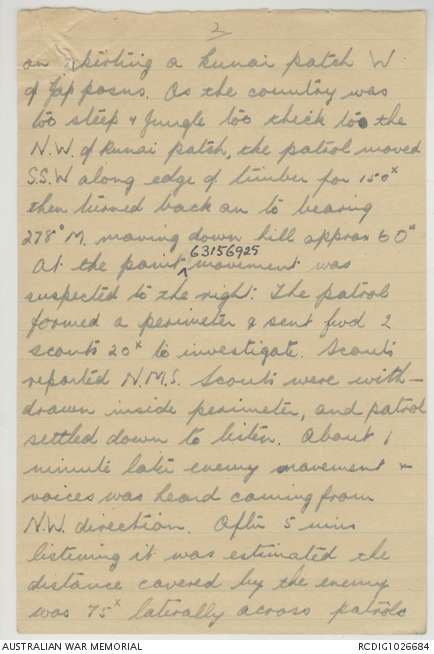 2
on skirting a kunai patch W
of Jap posns. As the country was
too steep & jungle too thick to the
N.W. of kunai patch, the patrol moved
S.S.W along edge of timber for 150x
then turned back on to bearing
278° M. moving down hill approx 60x
63156925
At the point ^ movement was
suspected to the right. The patrol
formed a perimeter & sent fwd 2
scouts 20x to investigate. Scouts
reported N.M.S. Scouts were with-
drawn inside perimeter, and patrol
settled down to listen. About 1
minute later enemy movement &
voices was heard coming from
N.W. direction. After 5 mins
listening it was estimated the
distance covered by the enemy
was 75x laterally across patrols
AUSTRALIAN WAR MEMORIAL
RCDIG1026684